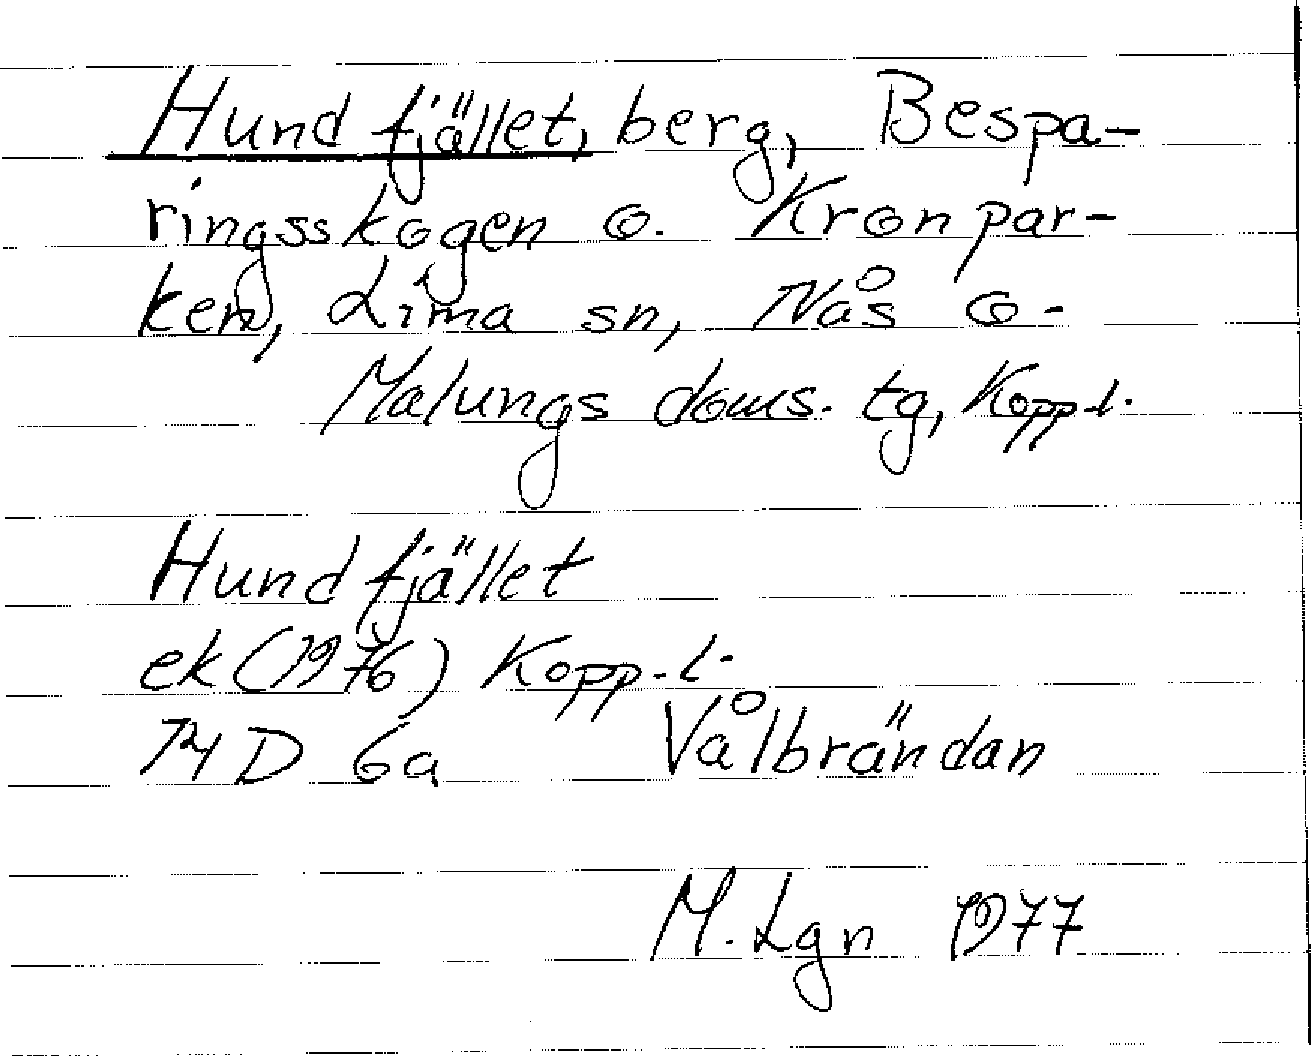 Hundfjället, berg, Bespa-
ringsskogen o. Kronpar-
ken, Lima sn, Nås o.
Malungs doms. tg, Kopp.l.
Hundfjället
ek (1976) Kopp.l.
14 D 6a Vålbrändan
M. Lgn 1977